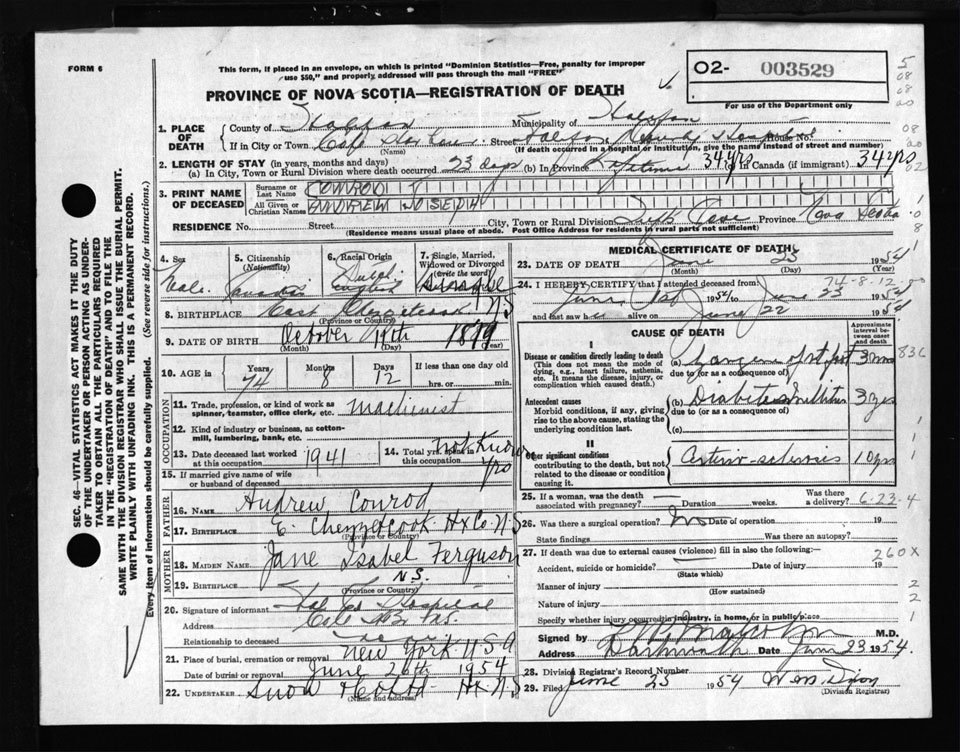 FORM 6
This form, if placed in an envelope, on which is printed "Dominion Statistics—Free, penalty for improper
use $50," and properly addressed will pass through the mail "FREE"
PROVINCE OF NOVA SCOTIA—REGISTRATION OF DEATH
02- 003529
For use of the Department only
1. PLACE OF DEATH
County of Halifax Municipality of Halifax
If in City or Town Street Halifax County Hospital House No.
(Name) (If death occurred in a hospital or institution, give the name instead of street and number)
2. LENGTH OF STAY (in years, months and days)
(a) In City, Town or Rural Division where death occurred 23 days (b) In Province Lifetime 34 yrs (c) In Canada (if immigrant) 34 yrs
3. PRINT NAME OF DECEASED
Surname or Last Name CONROD
All Given or Christian Names ANDREW JOSEPH
RESIDENCE No. Street City, Town or Rural Division Cove Province Nova Scotia
(Residence means usual place of abode. Post Office Address for residents in rural parts not sufficient)
4. Sex Male
5. Citizenship (Nationality) Canadian
6. Racial Origin
7. Single, Married, Widowed or Divorced (Write the word) Single
8. BIRTHPLACE East Chezzetcook N.S
(Province or Country)
9. DATE OF BIRTH October 1879
(Month) (Day) (Year)
10. AGE in Years 74 Months 8 Days 12 If less than one day old
hrs. or min.
OCCUPATION
11. Trade, profession, or kind of work as spinner, teamster, office clerk, etc. Machinist
12. Kind of industry or business, as cotton-mill, lumbering, bank, etc.
13. Date deceased last worked at this occupation 1941
14. Total yrs. spent in this occupation Not Known
15. If married give name of wife or husband of deceased
FATHER
16. NAME Andrew Conrod
17. BIRTHPLACE E. Chezzetcook Hx Co. N.S
(Province or Country)
MOTHER
18. MAIDEN NAME Jane Isabel Ferguson
19. BIRTHPLACE N.S.
(Province or Country)
20. Signature of informant Hal Co Hospital
Address
Relationship to deceased
21. Place of burial, cremation or removal New York U S A
Date of burial or removal June 26th 1954
22. UNDERTAKER Snow Hx N.S
(Name and address)
MEDICAL CERTIFICATE OF DEATH
23. DATE OF DEATH June 23 1954
(Month) (Day) (Year)
24. I HEREBY CERTIFY that I attended deceased from 74-8-12
June 1st 1954 to June 23 1954
and last saw h alive on June 22 1954
CAUSE OF DEATH
Approximate interval between onset and death
I
Disease or condition directly leading to death
(This does not mean the mode of dying, e.g., heart failure, asthenia, etc. It means the disease, injury, or complication which caused death.)
(a) Gangrene of foot 3 mos
due to (or as a consequence of)
Antecedent causes
Morbid conditions, if any, giving rise to the above cause, stating the underlying condition last.
(b) Diabetes mellitus 3 yrs
due to (or as a consequence of)
(c)
II
Other significant conditions contributing to the death, but not related to the disease or condition causing it.
Arterio-sclerosis 10 yrs
25. If a woman, was the death associated with pregnancy? Duration weeks. Was there a delivery? 6-23-4
26. Was there a surgical operation? No Date of operation 19
State findings Was there an autopsy?
27. If death was due to external causes (violence) fill in also the following:-
Accident, suicide or homicide? Date of injury 19 260X
(State which)
Manner of injury
(How sustained)
Nature of injury
Specify whether injury occurred in industry, in home, or in public place
Signed by M.D.
Address Dartmouth Date June 23 1954.
28. Division Registrar's Record Number
29. Filed June 25 1954
(Division Registrar)
SEC. 46—VITAL STATISTICS ACT MAKES IT THE DUTY
OF THE UNDERTAKER OR PERSON ACTING AS UNDER-
TAKER TO OBTAIN ALL THE PARTICULARS REQUIRED
IN THE "REGISTRATION OF DEATH" AND TO FILE THE
SAME WITH THE DIVISION REGISTRAR WHO SHALL ISSUE THE BURIAL PERMIT.
WRITE PLAINLY WITH UNFADING INK. THIS IS A PERMANENT RECORD.
Every item of information should be carefully supplied. (See reverse side for instructions.)